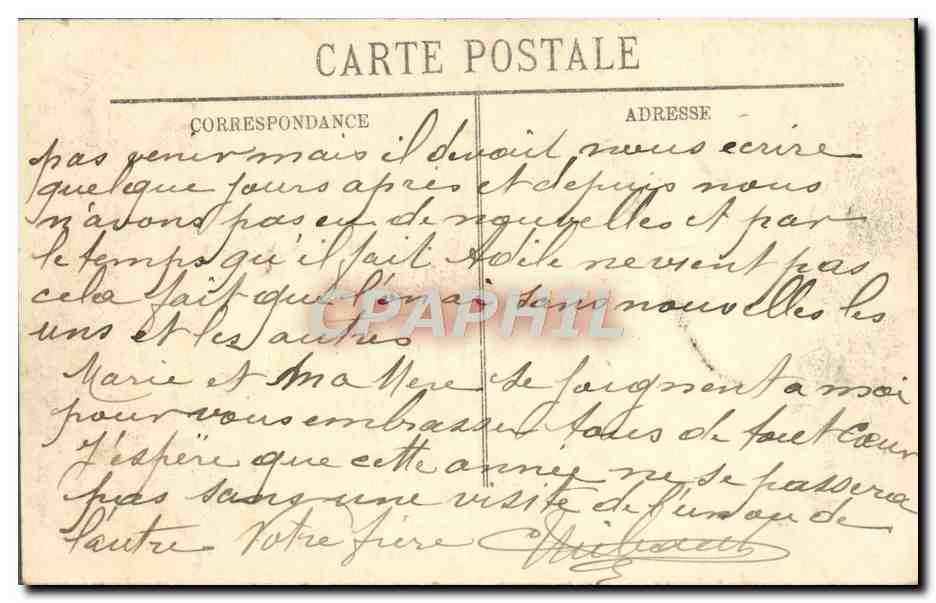 CARTE POSTALE
CORRESPONDANCE
ADRESSE
pas venir mais il devait nous écrire
quelque jours après et depuis nous
n'avons pas eu de nouvelles et par
le temps qu'il fait Adèle ne vient pas
cela fait que l'on ai sans nouvelles les
uns et les autres
CPAPHIL
Marie et Ma Mère se joignent a moi
pour vous embrasser tous de tout Cœur
J'espère que cette année ne se passera
pas sans une visite de l'un ou de
l'autre Votre frère